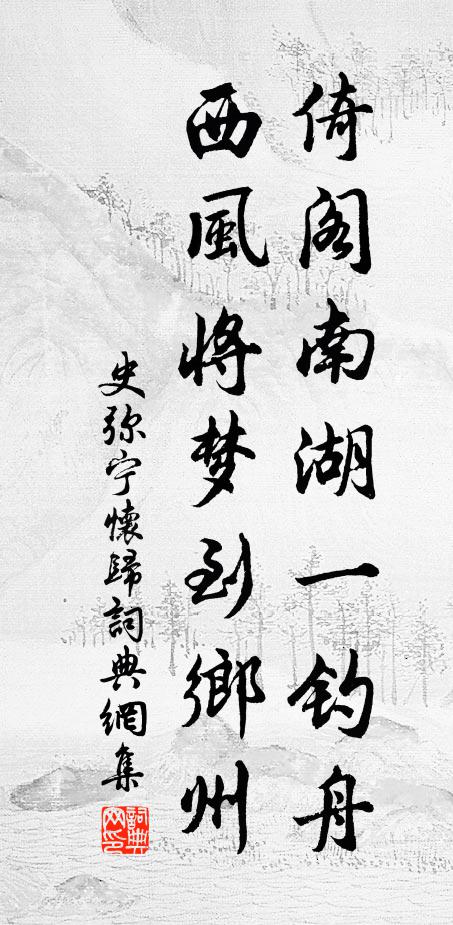 倚阁南湖一钓舟
西風将梦到鄉州
史弥宁懷歸詞典網集
詞典网印